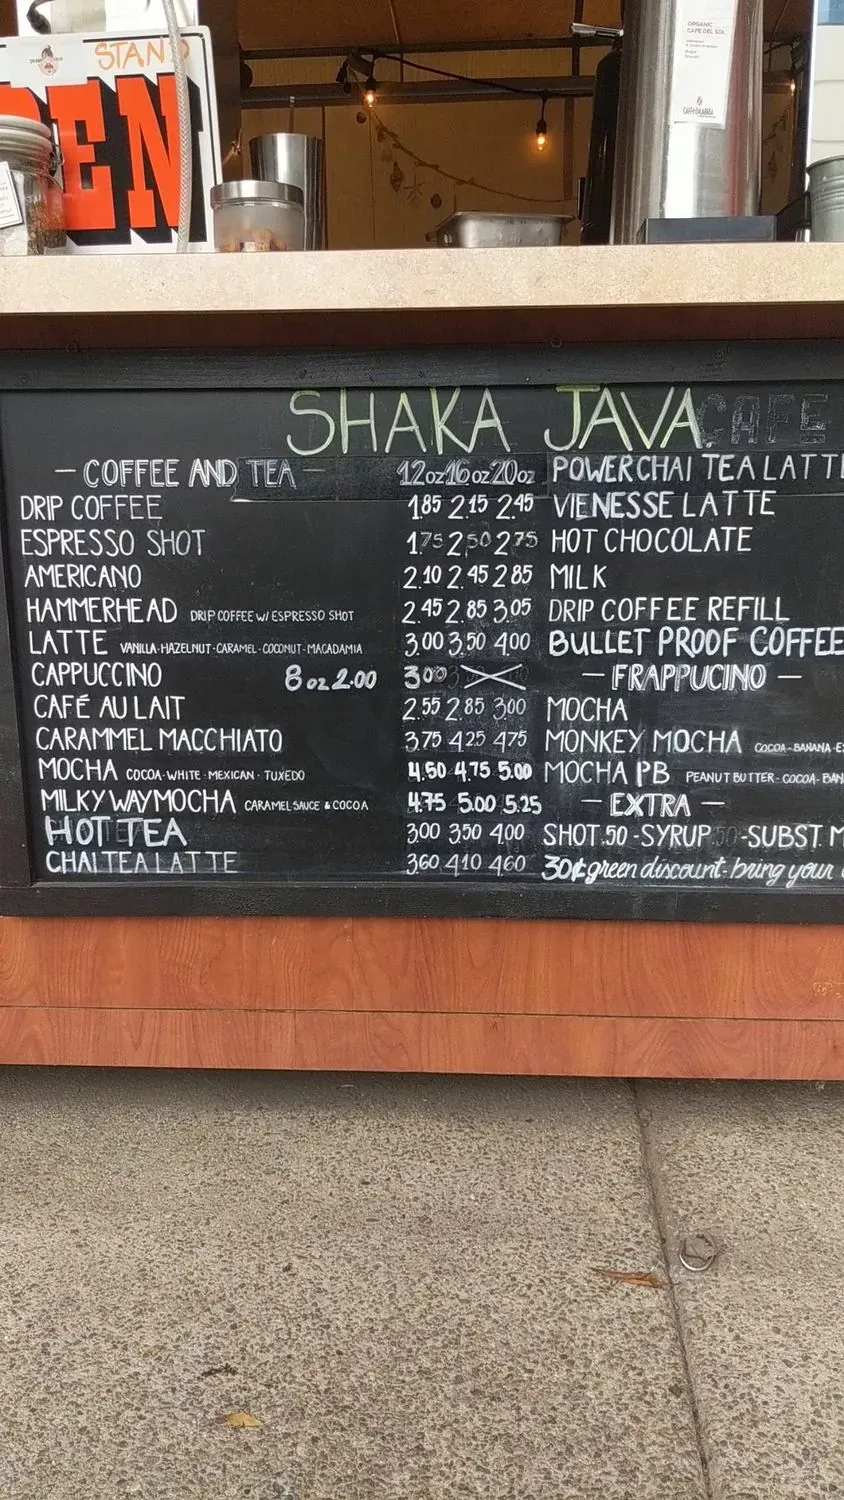 STAND
EN
ORGANIC
CAFE DEL SOL
CAFFE CALABRIA
SHAKA JAVA CAFE
- COFFEE AND TEA - 12oz 16oz 20oz
DRIP COFFEE 1.85 2.15 2.45
ESPRESSO SHOT 1.75 2.50 2.75
AMERICANO 2.10 2.45 2.85
HAMMERHEAD DRIP COFFEE W/ ESPRESSO SHOT 2.45 2.85 3.05
LATTE VANILLA·HAZELNUT·CARAMEL·COCONUT·MACADAMIA 3.00 3.50 4.00
CAPPUCCINO 8oz 2.00 3.00
CAFÉ AU LAIT 2.55 2.85 3.00
CARAMMEL MACCHIATO 3.75 4.25 4.75
MOCHA COCOA·WHITE·MEXICAN·TUXEDO 4.50 4.75 5.00
MILKY WAY MOCHA CARAMEL SAUCE & COCOA 4.75 5.00 5.25
HOT TEA 3.00 3.50 4.00
CHAI TEA LATTE 3.60 4.10 4.60
POWER CHAI TEA LATT
VIENESSE LATTE
HOT CHOCOLATE
MILK
DRIP COFFEE REFILL
BULLET PROOF COFFEE
- FRAPPUCINO -
MOCHA
MONKEY MOCHA COCOA-BANANA-ES
MOCHA PB PEANUT BUTTER-COCOA-BAN
- EXTRA -
SHOT .50 -SYRUP .50 -SUBST. M
30¢ green discount-bring your